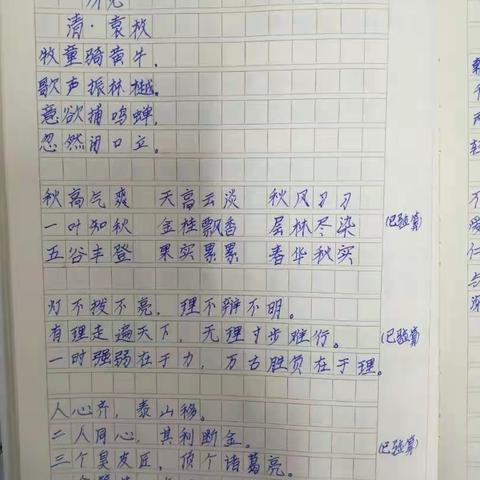 清·袁枚
牧童骑黄牛，
歌声振林樾。
意欲捕鸣蝉，
忽然闭口立。
秋高气爽 天高云淡 秋风习习
一叶知秋 金桂飘香 层林尽染
(已验算)
五谷丰登 果实累累 春华秋实
灯不拨不亮，理不辩不明。
有理走遍天下，无理寸步难行。
(已验算)
一时强弱在于力，万古胜负在于理。
人心齐，泰山移。
二人同心，其利断金。
(已验算)
三个臭皮匠，顶个诸葛亮。